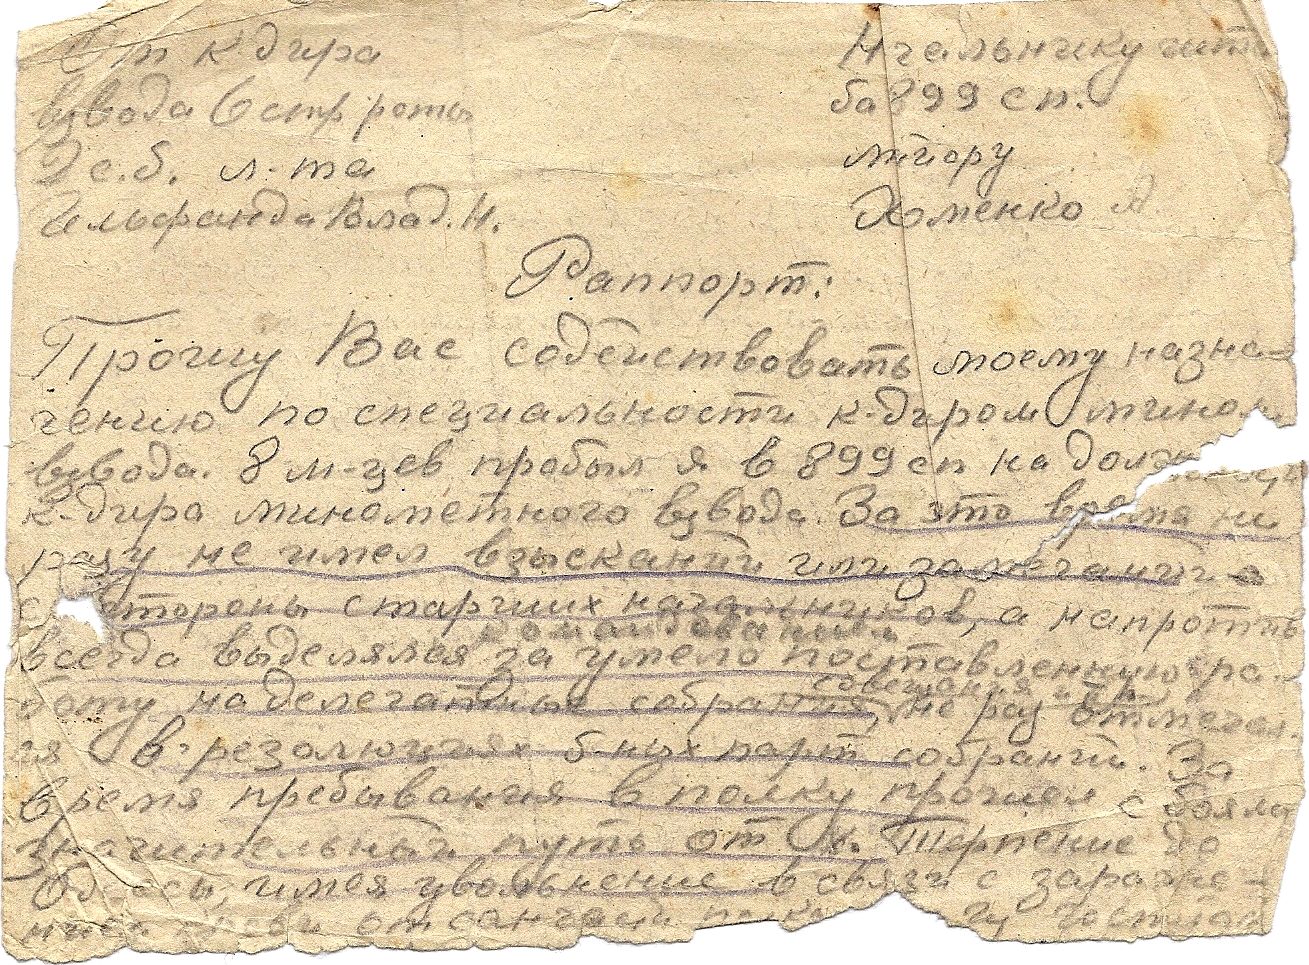 От к-дира
взвода 6 стр роты
2 с.б. л-та
Гельфанда Влад. Н.
Начальнику шта
ба 899 сп.
майору
Хоменко А.
Раппорт:
Прошу Вас содействовать моему назна-
чению по специальности к-диром мином.
взвода. 8 м-цев пробыл я в 899 сп на долж
к-дира минометного взвода. За это время ни
разу не имел взысканий или замечаний
стороны старших начальников, а напротив
командованием
всегда выделялся за умело поставленную ра-
совещания и т.п.
боту на делегатных собраниях, не раз отмечал
ся в резолюциях б-ных парт собраний. За
время пребывания в полку прошел с боями
значительный путь от х. Терпение до
Одессы, имея увольнение в связи с зараже-
крови от санчасти по